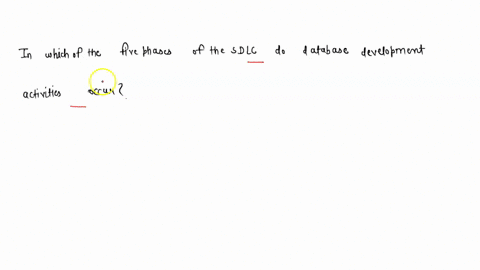 In which of the five phases of the SDLC do database development
activities occur?